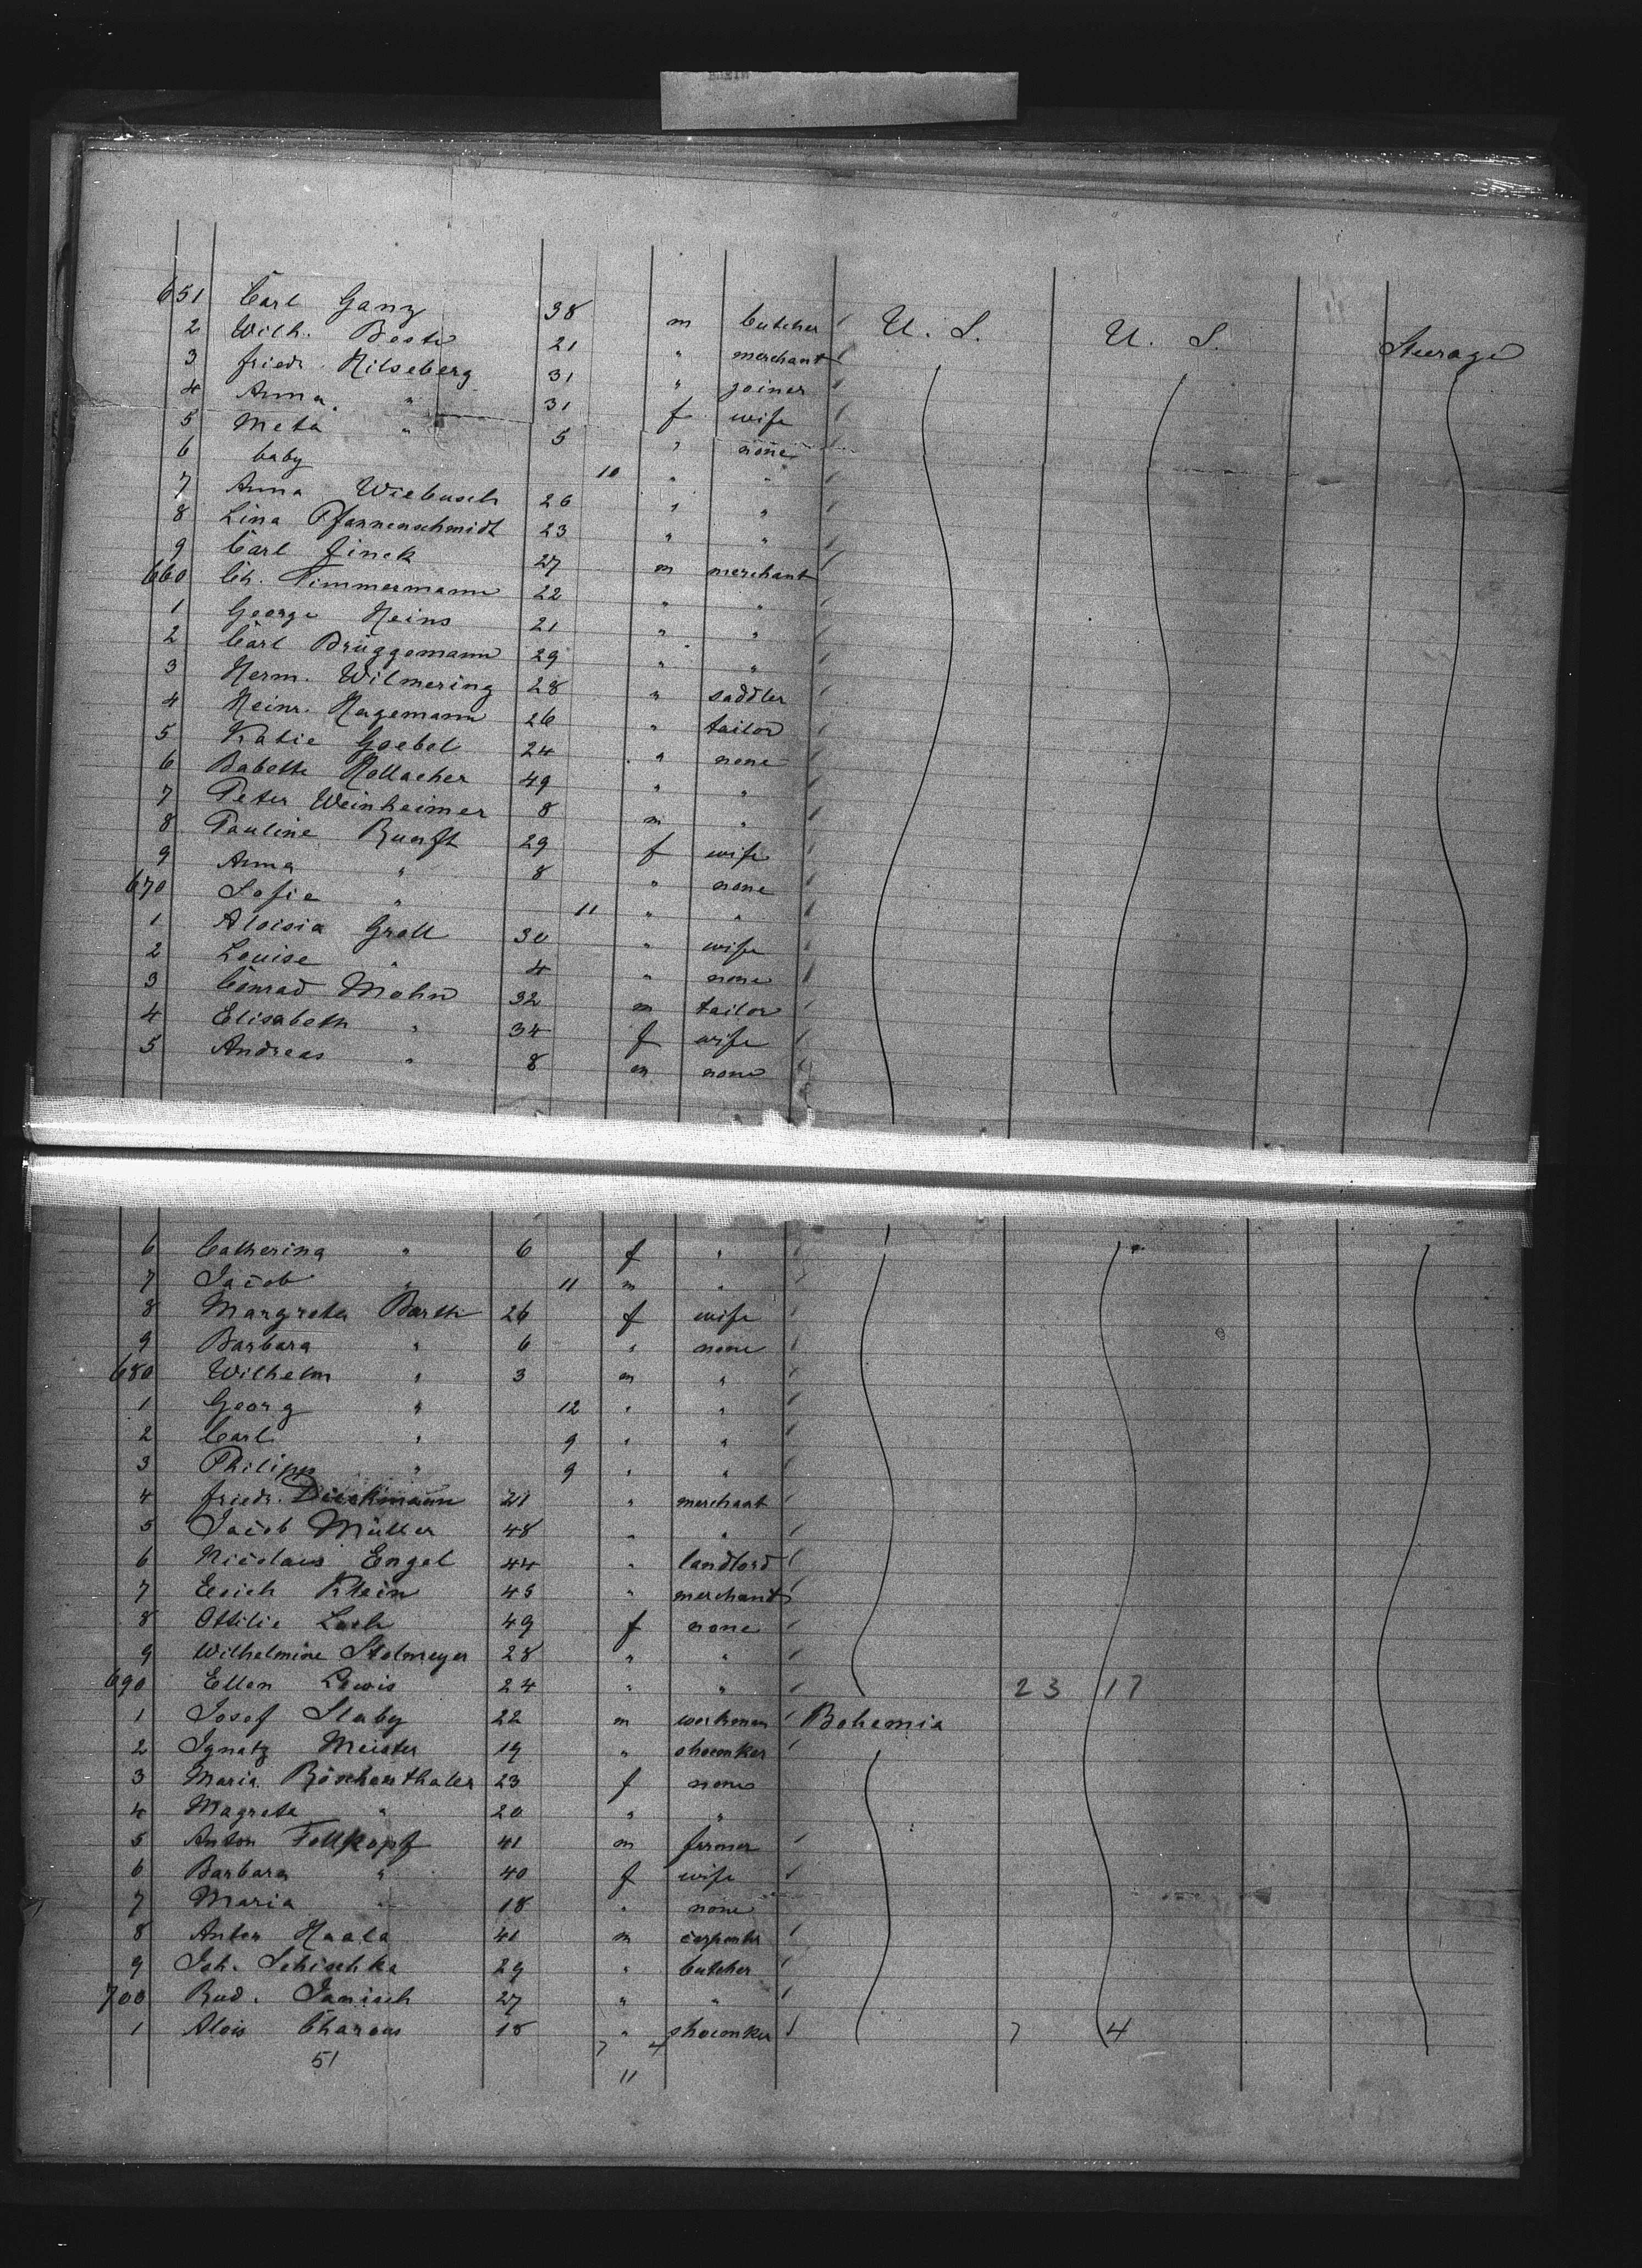 651 Carl Ganz 38 m butcher U. S. U. S. Steerage
2 Wilh. Beste 21 " merchant
3 Friedr. Hilseberg 31 " joiner
4 Anna " 31 f wife
5 Meta " 5 " none
6 baby 10 " "
7 Anna Wiebusch 26 " "
8 Lina Pfannenschmidt 23 " "
9 Carl Finck 27 m merchant
660 Ch. Timmermann 22 " "
1 George Heins 21 " "
2 Carl Brüggemann 29 " "
3 Herm. Wilmering 28 " saddler
4 Heinr. Hagemann 26 " tailor
5 Katie Goebel 24 " none
6 Babette Hollacher 49 " "
7 Peter Weinheimer 8 m "
8 Pauline 29 f wife
9 Anna " 8 " none
670 Sofie " 11 " "
1 Aloisia Groll 30 " wife
2 Louise " 4 " none
3 Conrad Mohn 32 m tailor
4 Elisabeth " 34 f wife
5 Andreas " 8 m none
6 Catherina " 6 f "
7 Jacob " 11 m "
8 Margreta Barth 26 f wife
9 Barbara " 6 " none
680 Wilhelm " 3 m "
1 Georg " 12 " "
2 Carl " 9 " "
3 Philipp " 9 " "
4 Friedr. Dieckmann 21 " merchant
5 Jacob Müller 48 " "
6 Nicolaus Engel 44 " landlord
7 Erich Klein 45 " merchant
8 Ottilie 49 f none
9 Wilhelmine Stolmeyer 28 " "
690 Ellen Lewis 24 " " 23 17
1 Josef Slaby 22 m workman Bohemia
2 Ignatz Meister 19 " shoemker
3 Maria Röschenthaler 23 f none
4 Magreta " 20 " "
5 Anton Follkopf 41 m farmer
6 Barbara " 40 f wife
7 Maria " 18 " none
8 Anton Haala 41 m carpenter
9 Joh. Schischka 29 " butcher
700 Rud. Janisch 27 " "
1 Alois Charous 18 " shoemker 7 4
51 7 4
11